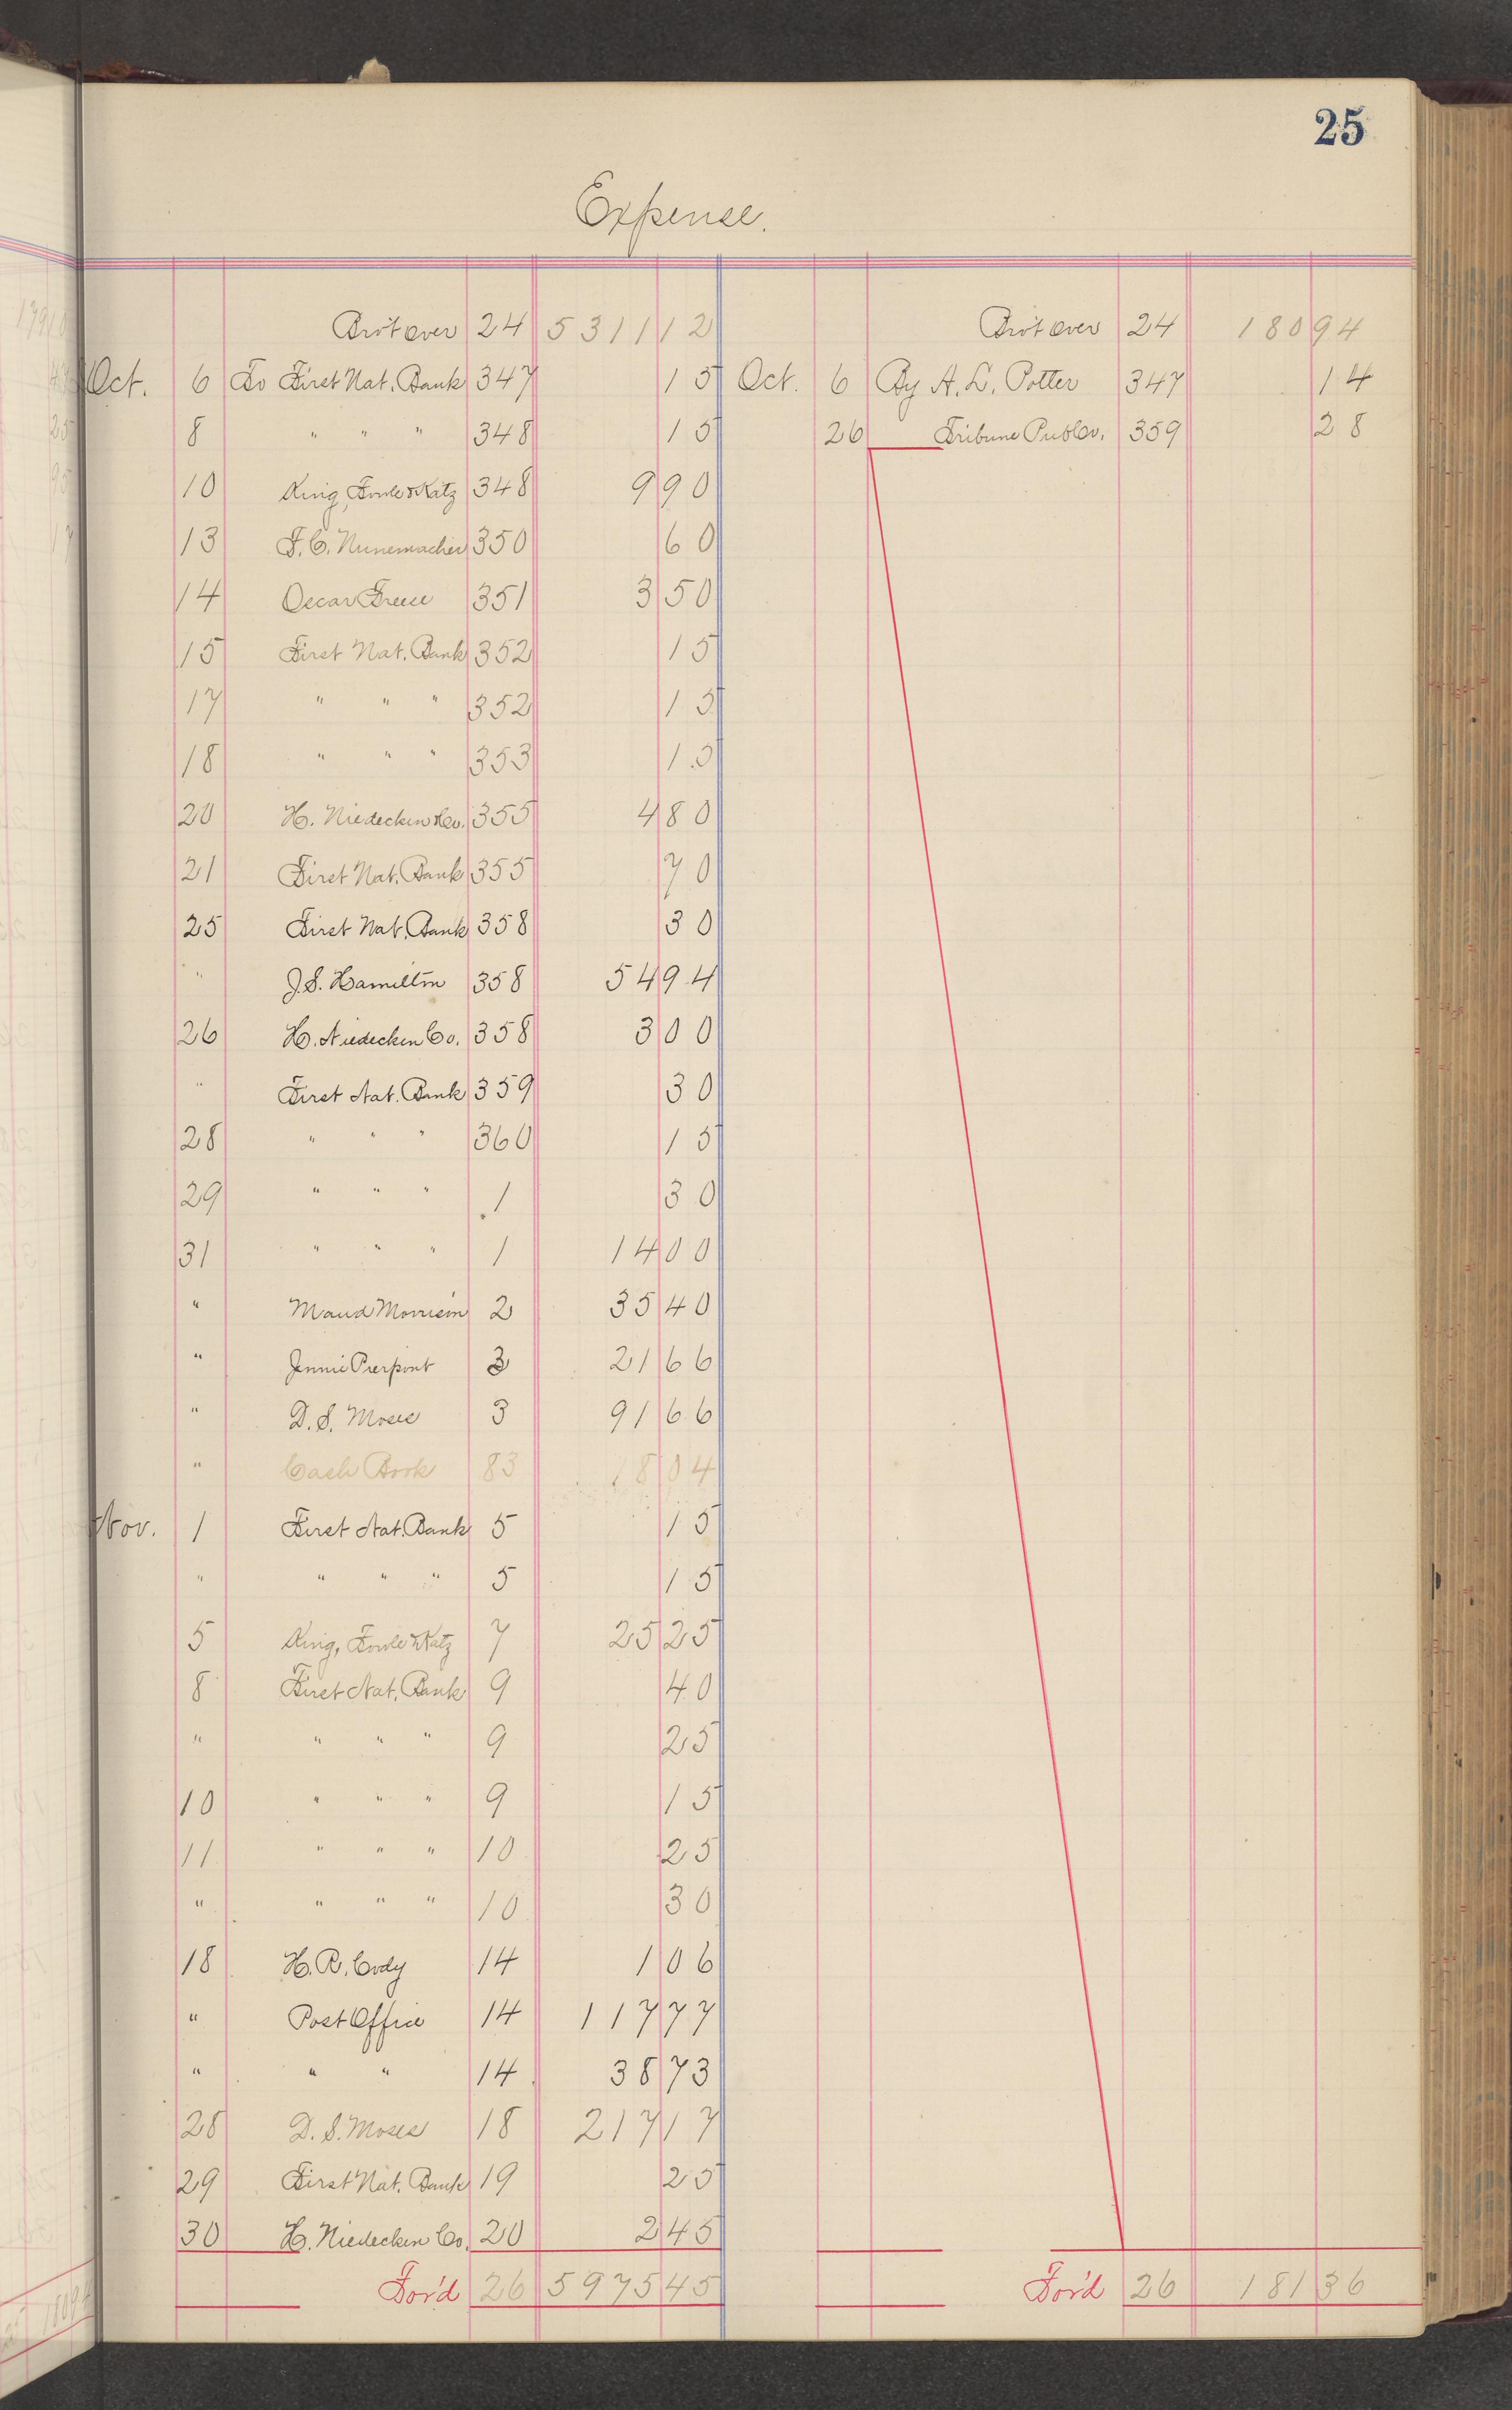 25
Expense.
Bro't over 24 5311 12 Bro't over 24 180 94
Oct. 6 To First Nat. Bank 347 15 Oct. 6 By A. L. Potter 347 14
8 " " " 348 15 26 Tribune Pub Co. 359 28
10 King, Fowle & Katz 348 9 90
13 F. C. Nunemacher 350 60
14 Oscar Freese 351 3 50
15 First Nat. Bank 352 15
17 " " " 352 15
18 " " " 353 15
20 H. Niedecken & Co. 355 4 80
21 First Nat. Bank 355 70
25 First Nat. Bank 358 30
" J. S. Hamilton 358 54 94
26 H. Niedecken Co. 358 3 00
" First Nat. Bank 359 30
28 " " " 360 15
29 " " " 1 30
31 " " " 1 14 00
" Maud Morrison 2 35 40
" Jennie Pierpont 3 21 66
" D. S. Moses 3 91 66
" Cash Book 83 18 04
Nov. 1 First Nat. Bank 5 15
" " " " 5 15
5 King, Fowle & Katz 7 25 25
8 First Nat. Bank 9 40
" " " " 9 25
10 " " " 9 15
11 " " " 10 25
" " " " 10 30
18 H. R. Cody 14 1 06
" Post Office 14 117 77
" " " 14 38 73
28 D. S. Moses 18 217 17
29 First Nat. Bank 19 25
30 H. Niedecken Co. 20 2 45
For'd 26 5975 45 For'd 26 181 36